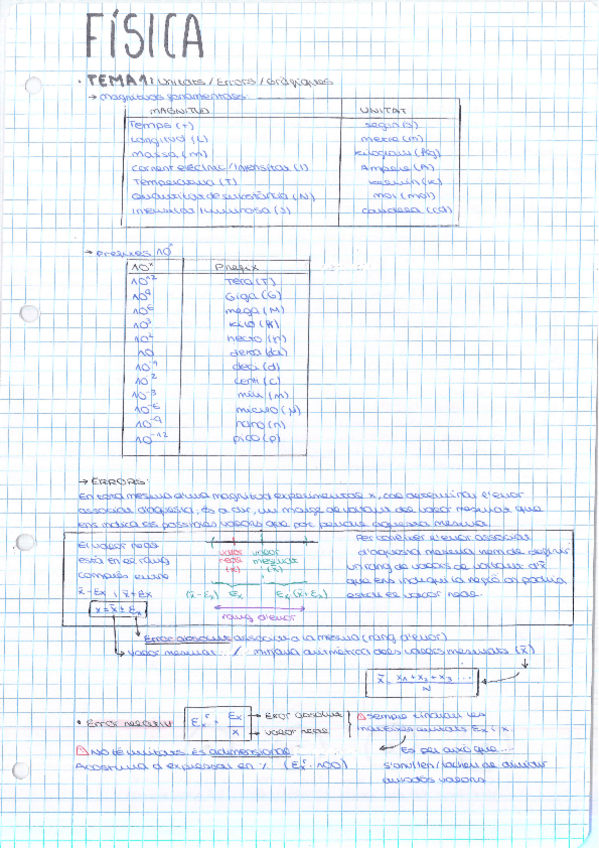 FÍSICA
· TEMA 1: Unitats / Errors / Gràfiques
→ Magnituds fonamentals:
MAGNITUD UNITAT
Temps (t) segon (s)
Longitud (L) metre (m)
massa (m) kilogram (kg)
corrent elèctric/intensitat (I) Ampere (A)
Temperatura (T) kelvin (K)
Quantitat de substància (N) mol (mol)
Intensitat lluminosa (J) candela (cd)
→ prefixes 10ˣ
10ˣ Prefix
10¹² Tera (T)
10⁹ Giga (G)
10⁶ mega (M)
10³ kilo (k)
10² hecto (h)
10 deca (da)
10⁻¹ deci (d)
10⁻² centi (c)
10⁻³ mili (m)
10⁻⁶ micro (μ)
10⁻⁹ nano (n)
10⁻¹² pico (p)
→ ERRORS:
En tota mesura d'una magnitud experimental x, cal determinar l'error
associat d'aquesta, és a dir, un marge de valors del valor mesurat que
ens indica els possibles valors que pot prendre aquesta mesura.
El valor real
està en el rang
comprès entre
x̄-Ex i x̄+Ex
x = x̄ ± Ex
valor real (x)
valor mesurat (x̄)
(x̄-Ex) Ex Ex (x̄+Ex)
rang d'error
Per conèixer l'error associat
d'aquesta mesura hem de definir
un rang de valors al voltant d'x̄
que ens indiqui la regió on podria
estar el valor real.
Error absolut associat a la mesura (rang d'error)
valor mesurat ... / mitjana aritmètica dels valors mesurats (x̄)
x̄ = x₁+x₂+x₃ ... / N
• Error relatiu Exʳ = Ex / x → Error absolut
→ valor real
⚠ sempre tindran les
mateixes unitats Ex i x.
⚠ NO té unitats. És adimensional
Acostuma a expressar en % (Exʳ · 100)
És per això que ...
s'anul·len
valors